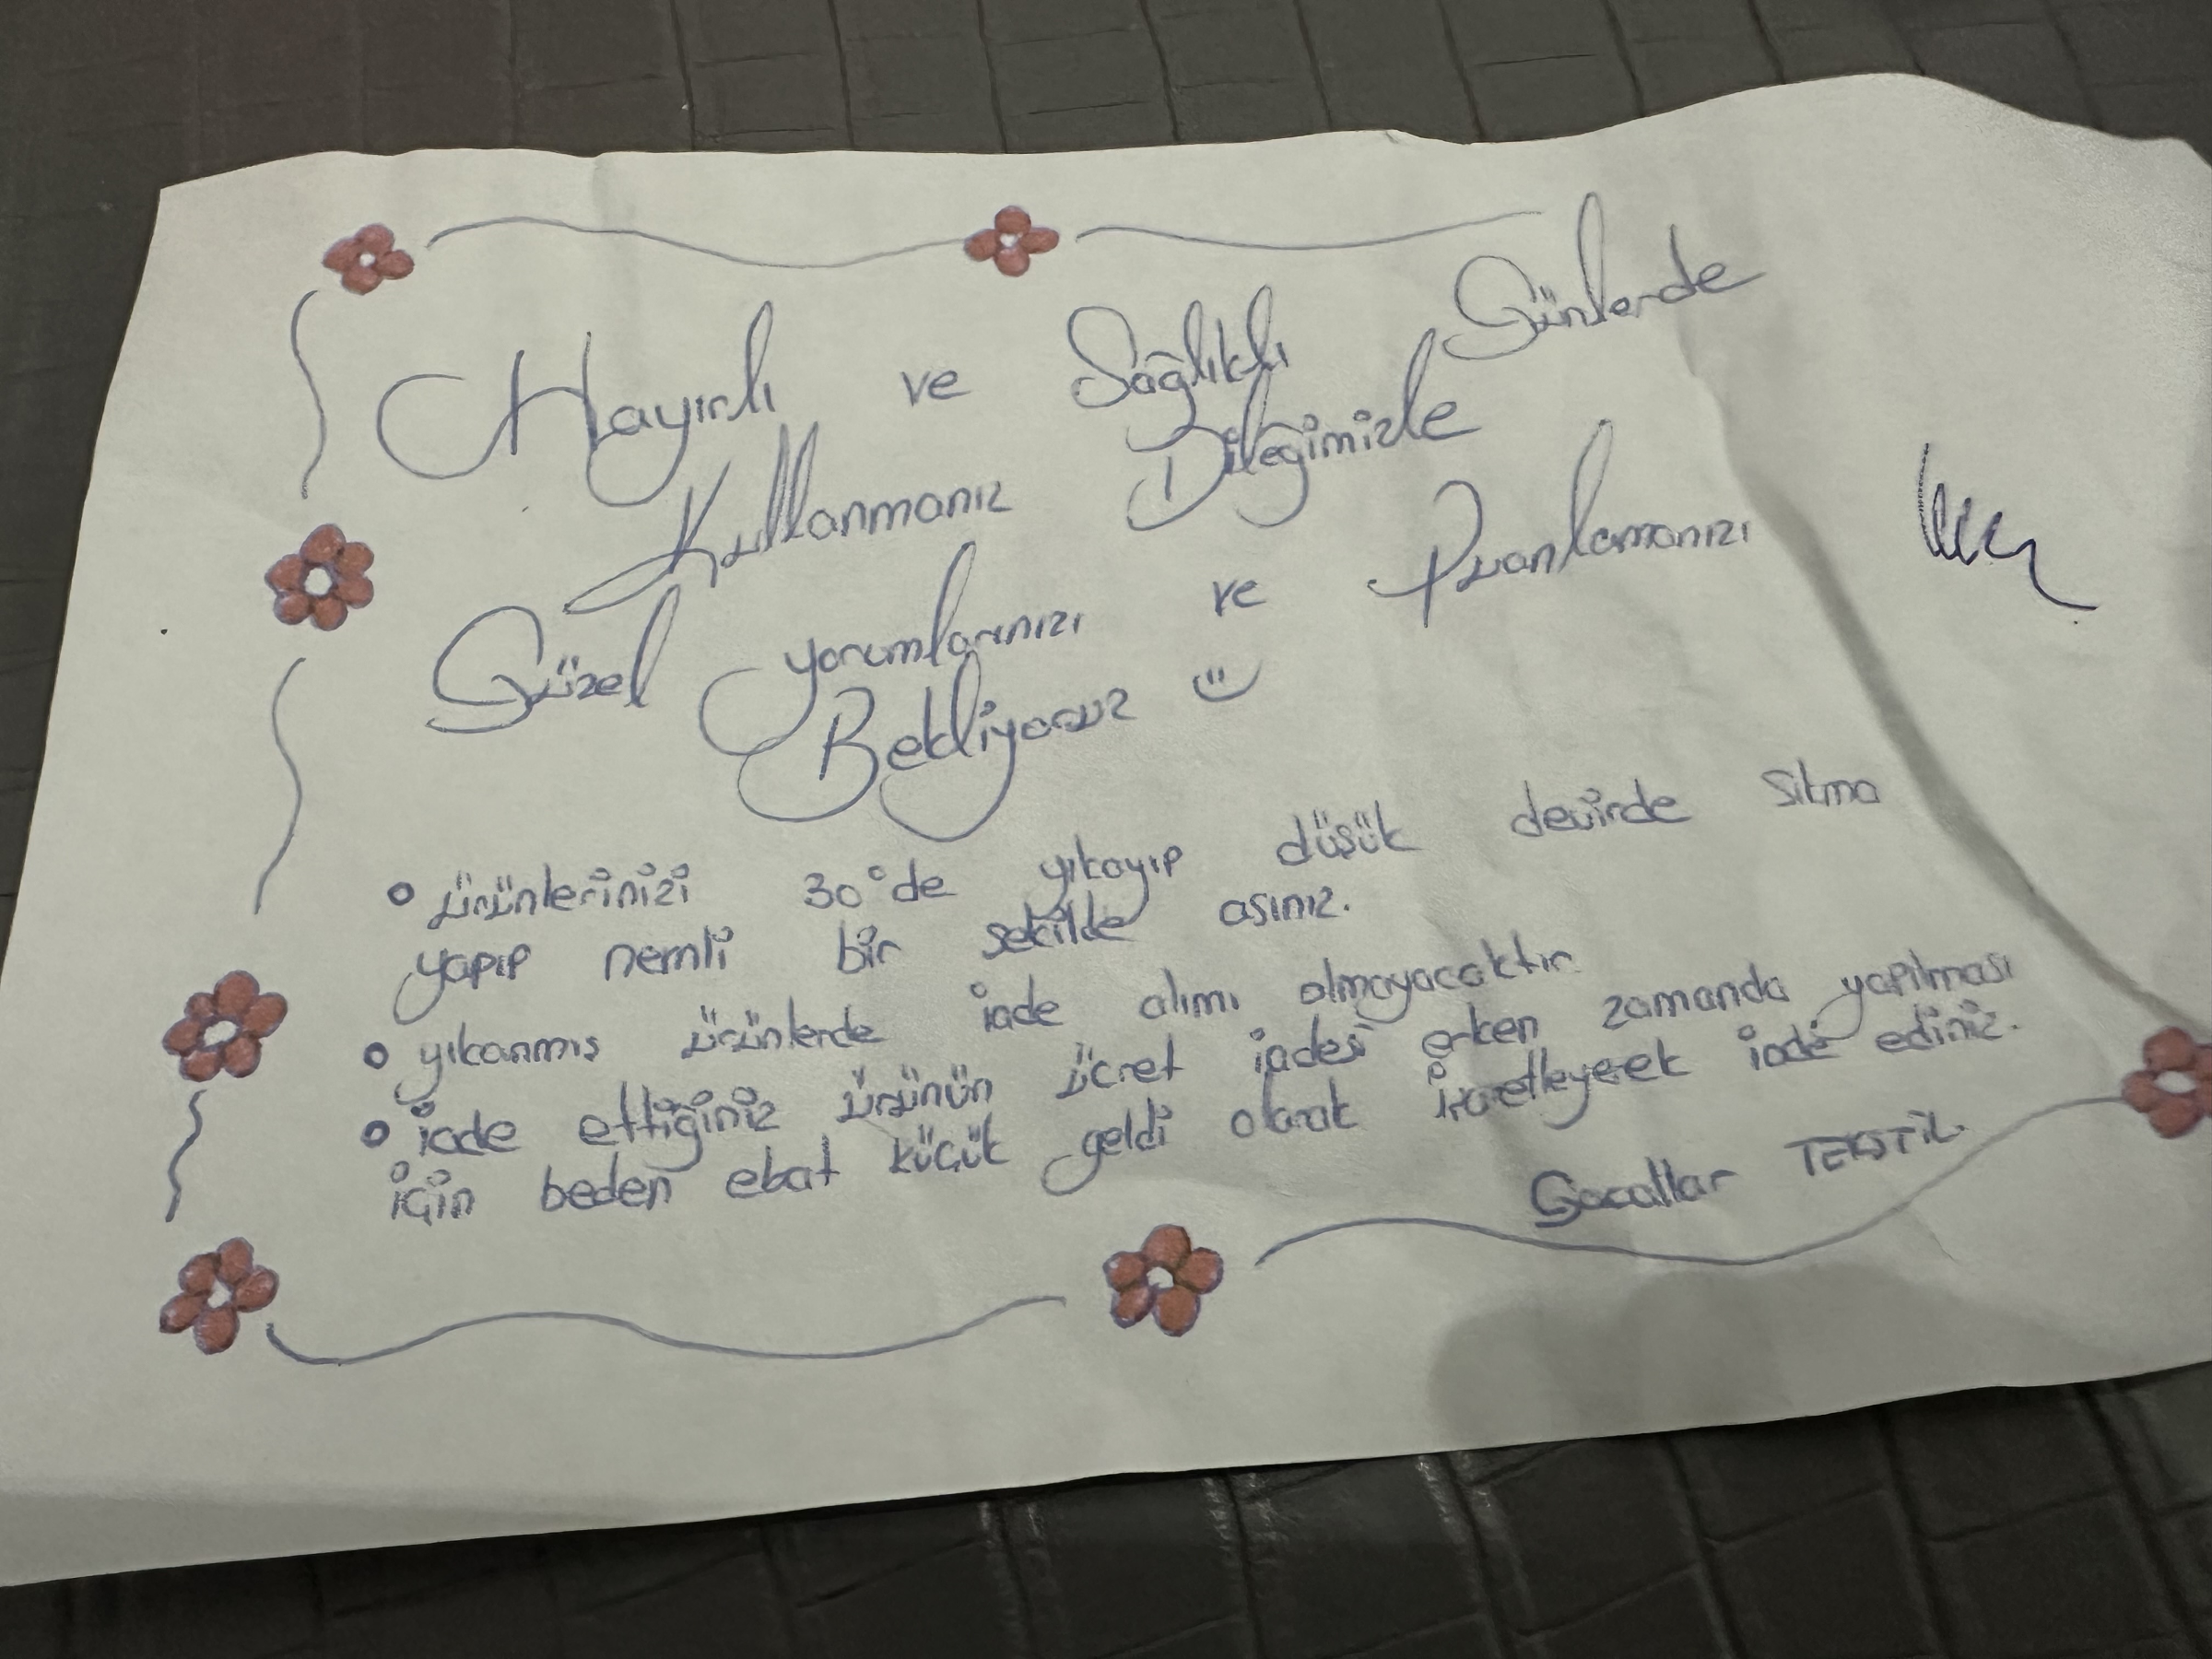 Hayırlı ve Sağlıklı Günlerde
Kullanmanız Dileğimizle
Güzel yorumlarınızı ve Puanlamanızı
Bekliyoruz
• ürünlerinizi 30°de yıkayıp düşük devirde sıkma
yapıp nemli bir şekilde asınız.
• yıkanmış ürünlerde iade alımı olmayacaktır.
• iade ettiğiniz ürünün ücret iadesi erken zamanda yapılması
için beden ebat küçük geldi olarak işaretleyerek iade ediniz.
TEKSTİL